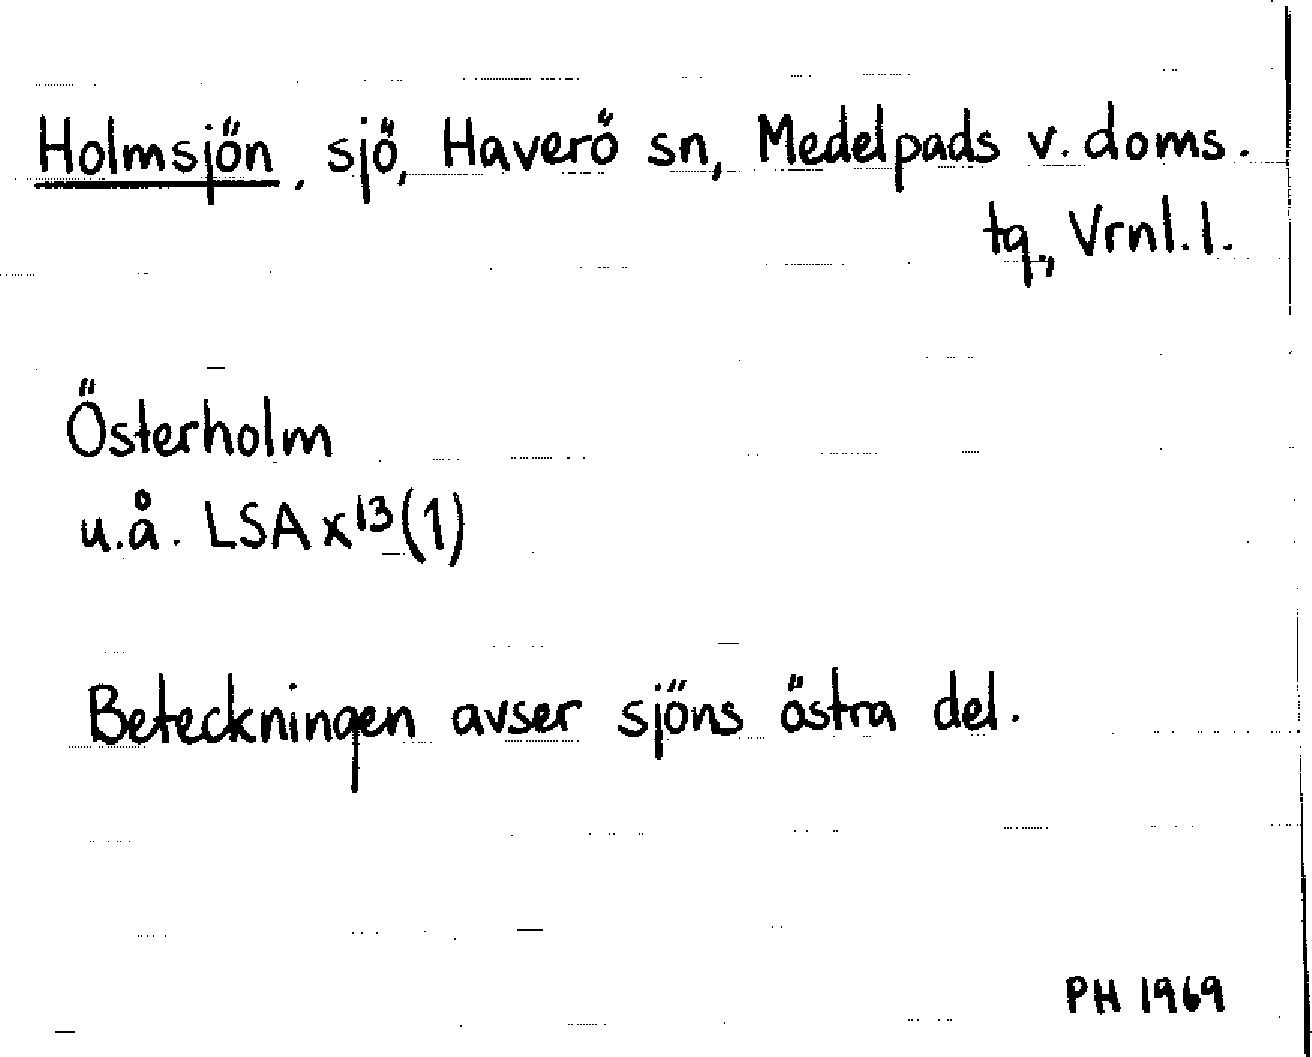 Holmsjön, sjö, Haverö sn, Medelpads v. doms.
tg., Vrnl. l.
Österholm
u.å. LSA x¹³(1)
Beteckningen avser sjöns östra del.
PH 1969